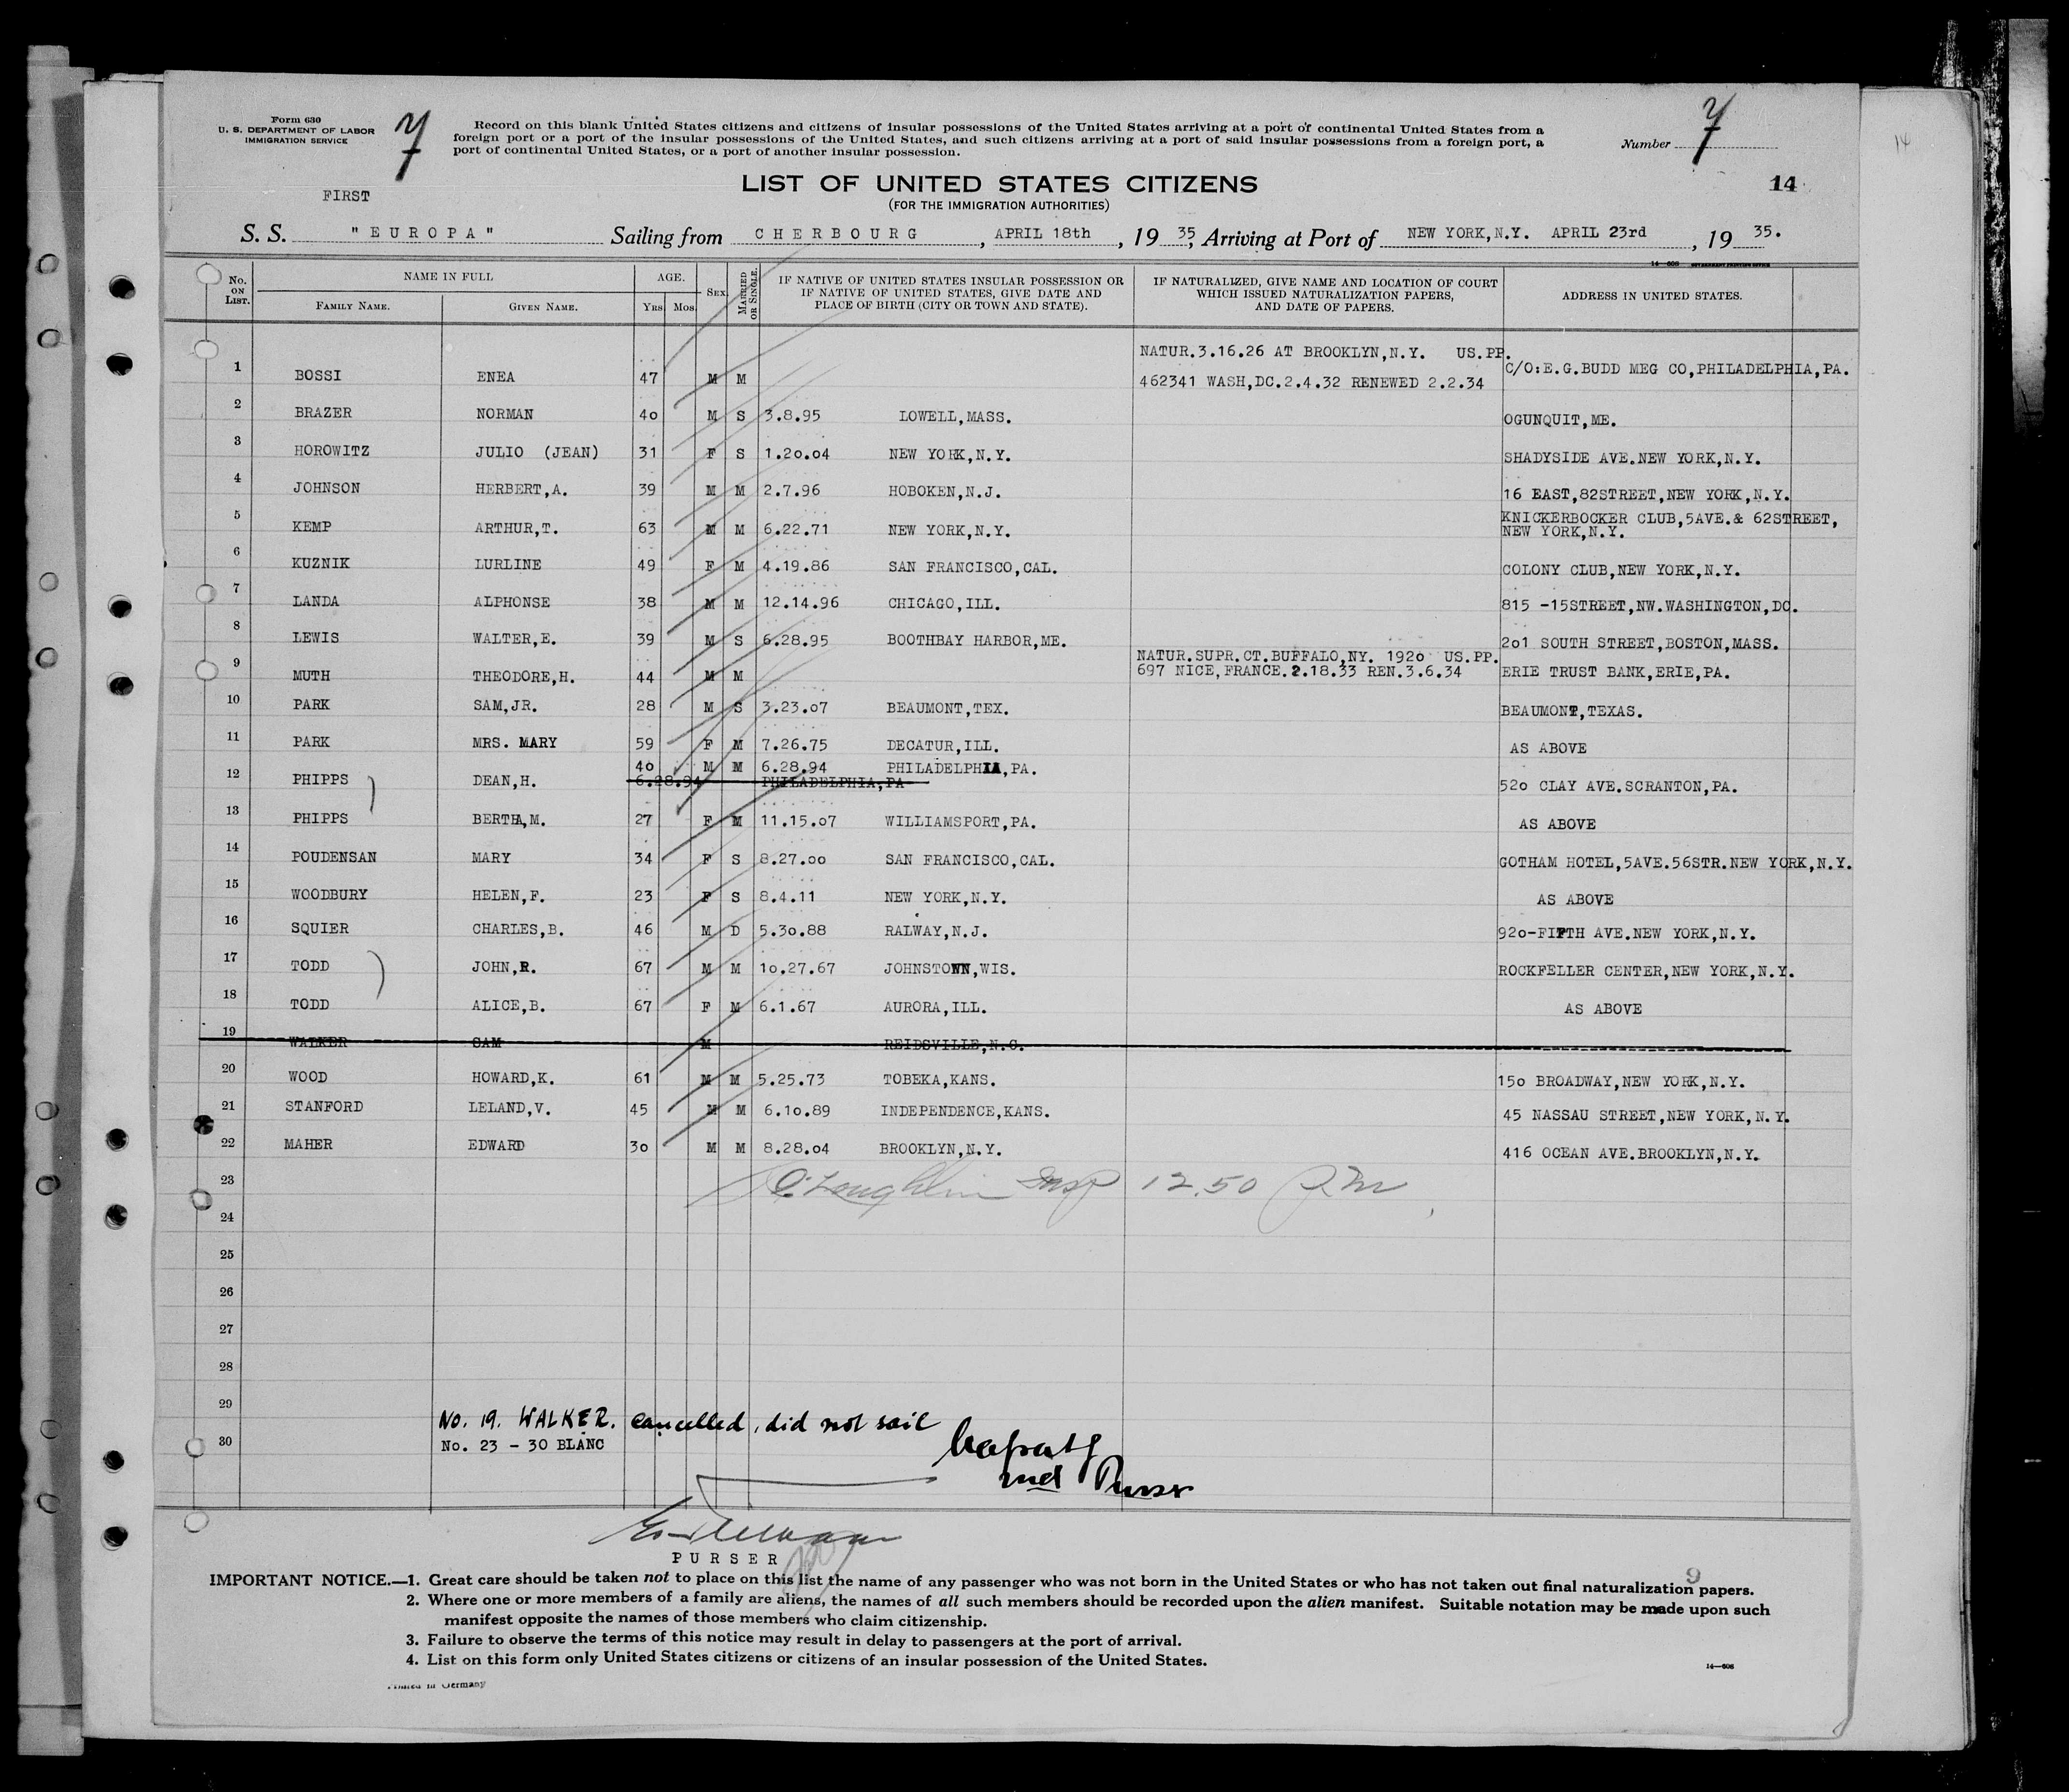 Form 630
U. S. DEPARTMENT OF LABOR
IMMIGRATION SERVICE
7
Record on this blank United States citizens and citizens of insular possessions of the United States arriving at a port of continental United States from a
foreign port or a port of the insular possessions of the United States, and such citizens arriving at a port of said insular possessions from a foreign port, a
port of continental United States, or a port of another insular possession.
Number 7
14
FIRST
LIST OF UNITED STATES CITIZENS
14
(FOR THE IMMIGRATION AUTHORITIES)
S. S. "EUROPA" Sailing from CHERBOURG, APRIL 18th, 19 35, Arriving at Port of NEW YORK,N.Y. APRIL 23rd, 19 35.
No. ON LIST. NAME IN FULL FAMILY NAME. GIVEN NAME. AGE. YRS MOS. SEX. MARRIED OR SINGLE. IF NATIVE OF UNITED STATES INSULAR POSSESSION OR IF NATIVE OF UNITED STATES, GIVE DATE AND PLACE OF BIRTH (CITY OR TOWN AND STATE). IF NATURALIZED, GIVE NAME AND LOCATION OF COURT WHICH ISSUED NATURALIZATION PAPERS, AND DATE OF PAPERS. ADDRESS IN UNITED STATES.
NATUR.3.16.26 AT BROOKLYN,N.Y. US.PP.
1 BOSSI ENEA 47 M M 462341 WASH,DC.2.4.32 RENEWED 2.2.34 C/O:E.G.BUDD MEG CO,PHILADELPHIA,PA.
2 BRAZER NORMAN 40 M S 3.8.95 LOWELL,MASS. OGUNQUIT,ME.
3 HOROWITZ JULIO (JEAN) 31 F S 1.20.04 NEW YORK,N.Y. SHADYSIDE AVE.NEW YORK,N.Y.
4 JOHNSON HERBERT,A. 39 M M 2.7.96 HOBOKEN,N.J. 16 EAST,82STREET,NEW YORK,N.Y.
5 KEMP ARTHUR,T. 63 M M 6.22.71 NEW YORK,N.Y. KNICKERBOCKER CLUB,5AVE.& 62STREET,
NEW YORK,N.Y.
6 KUZNIK LURLINE 49 F M 4.19.86 SAN FRANCISCO,CAL. COLONY CLUB,NEW YORK,N.Y.
7 LANDA ALPHONSE 38 M M 12.14.96 CHICAGO,ILL. 815 -15STREET,NW.WASHINGTON,DC.
8 LEWIS WALTER,E. 39 M S 6.28.95 BOOTHBAY HARBOR,ME. 201 SOUTH STREET,BOSTON,MASS.
NATUR.SUPR.CT.BUFFALO,NY. 1920 US.PP.
9 MUTH THEODORE,H. 44 M M 697 NICE,FRANCE.2.18.33 REN.3.6.34 ERIE TRUST BANK,ERIE,PA.
10 PARK SAM,JR. 28 M S 3.23.07 BEAUMONT,TEX. BEAUMONT,TEXAS.
11 PARK MRS. MARY 59 F M 7.26.75 DECATUR,ILL. AS ABOVE
40 M M 6.28.94 PHILADELPHIA,PA.
12 PHIPPS DEAN,H. 6.28.94 PHILADELPHIA,PA 520 CLAY AVE.SCRANTON,PA.
13 PHIPPS BERTHA,M. 27 F M 11.15.07 WILLIAMSPORT,PA. AS ABOVE
14 POUDENSAN MARY 34 F S 8.27.00 SAN FRANCISCO,CAL. GOTHAM HOTEL,5AVE.56STR.NEW YORK,N.Y.
15 WOODBURY HELEN,F. 23 F S 8.4.11 NEW YORK,N.Y. AS ABOVE
16 SQUIER CHARLES,B. 46 M D 5.30.88 RALWAY,N.J. 920-FIFTH AVE.NEW YORK,N.Y.
17 TODD JOHN,R. 67 M M 10.27.67 JOHNSTOWN,WIS. ROCKFELLER CENTER,NEW YORK,N.Y.
18 TODD ALICE,B. 67 F M 6.1.67 AURORA,ILL. AS ABOVE
19 WALKER SAM M REIDSVILLE,N.C.
20 WOOD HOWARD,K. 61 M M 5.25.73 TOBEKA,KANS. 150 BROADWAY,NEW YORK,N.Y.
21 STANFORD LELAND,V. 45 M M 6.10.89 INDEPENDENCE,KANS. 45 NASSAU STREET,NEW YORK,N.Y.
22 MAHER EDWARD 30 M M 8.28.04 BROOKLYN,N.Y. 416 OCEAN AVE.BROOKLYN,N.Y.
23 O'Loughlin Insp 12.50 P.M.
24
25
26
27
28
29
No. 19. WALKER. cancelled, did not sail
30 No. 23 - 30 BLANC
2nd Purser
PURSER
IMPORTANT NOTICE.—1. Great care should be taken not to place on this list the name of any passenger who was not born in the United States or who has not taken out final naturalization papers.
9
2. Where one or more members of a family are aliens, the names of all such members should be recorded upon the alien manifest. Suitable notation may be made upon such
manifest opposite the names of those members who claim citizenship.
3. Failure to observe the terms of this notice may result in delay to passengers at the port of arrival.
4. List on this form only United States citizens or citizens of an insular possession of the United States.
14—606
Printed in Germany